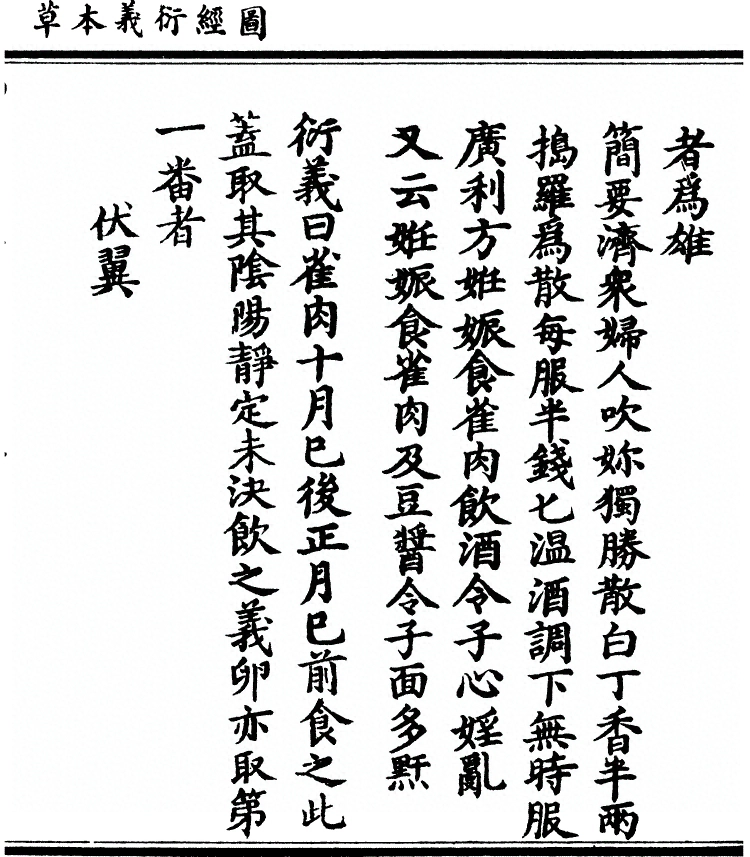 圖經衍義本草
者爲雄
簡要濟衆婦人吹妳獨勝散白丁香半兩
搗羅爲散每服半錢匕温酒調下無時服
廣利方姙娠食雀肉飲酒令子心婬亂
又云姙娠食雀肉及豆醬令子面多䵟
衍義曰雀肉十月巳後正月巳前食之此
蓋取其陰陽靜定未決飲之義卵亦取第
一番者
伏翼